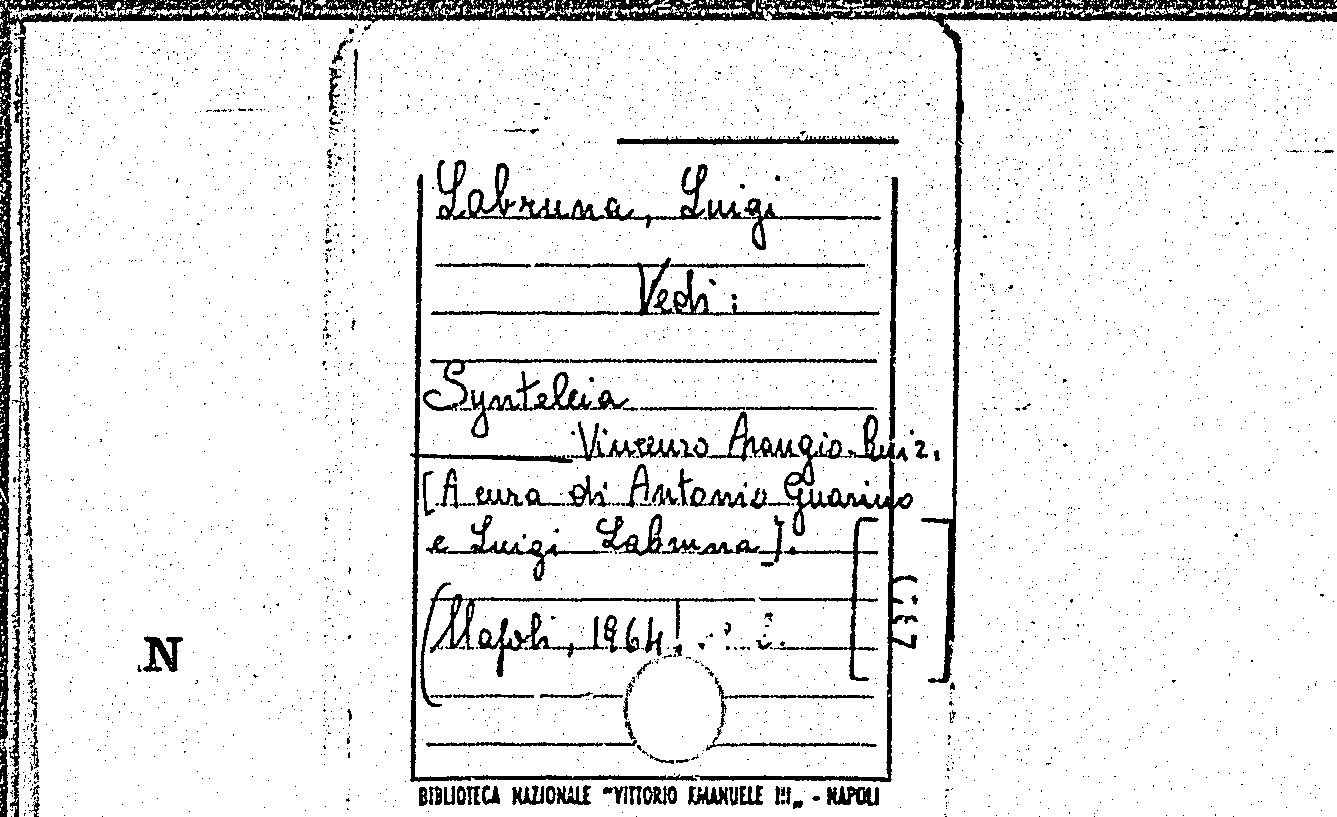 Labruna, Luigi
Vedi:
Synteleia
Vincenzo Arangio-Ruiz.
[A cura di Antonio Guarino
e Luigi Labruna].
(Napoli, 1964
N
BIBLIOTECA NAZIONALE "VITTORIO EMANUELE III„ - NAPOLI